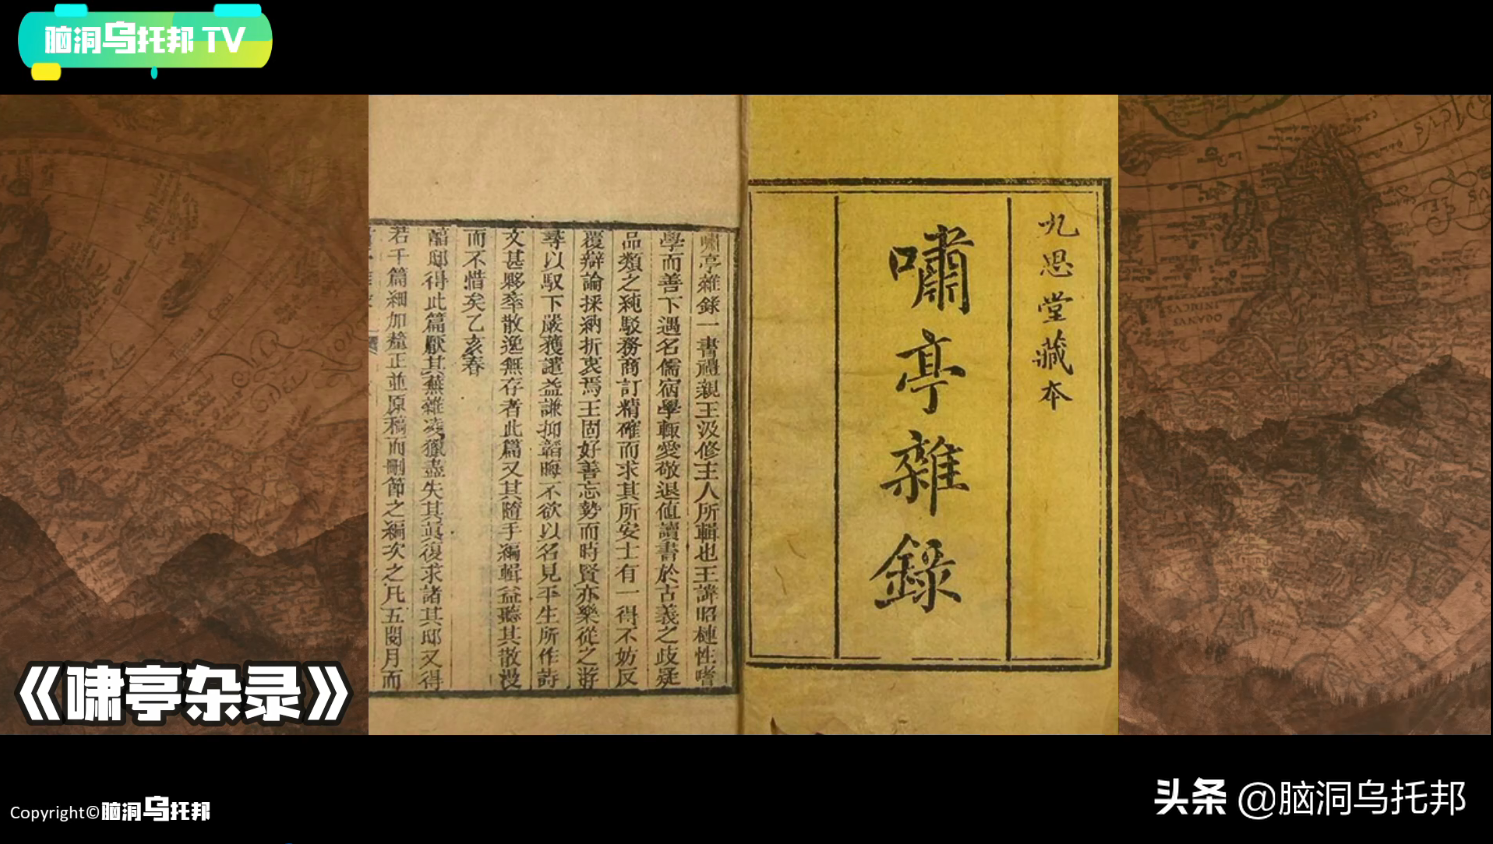 脑洞乌托邦 TV
九思堂藏本
嘯亭雜錄
嘯亭雜錄一書禮親王汲修主人所輯也王諱昭槤性嗜
學而善下遇名儒宿學輒愛敬退值讀書於古義之歧疑
品類之純駁務商訂精確而求其所安士有一得不妨反
覆辯論採納折衷焉王固好善忘勢而時賢亦樂從之游
尋以馭下嚴獲譴益謙抑韜晦不欲以名見平生所作詩
文甚夥率散逸無存者此篇又其隨手編輯益聽其散漫
而不惜矣乙亥春
邸得此篇厭其蕪雜凌獵盡失其真復求諸其邸又得
若干篇細加釐正並原稿而刪節之編次之凡五閱月而
《啸亭杂录》
Copyright©脑洞乌托邦
头条 @脑洞乌托邦